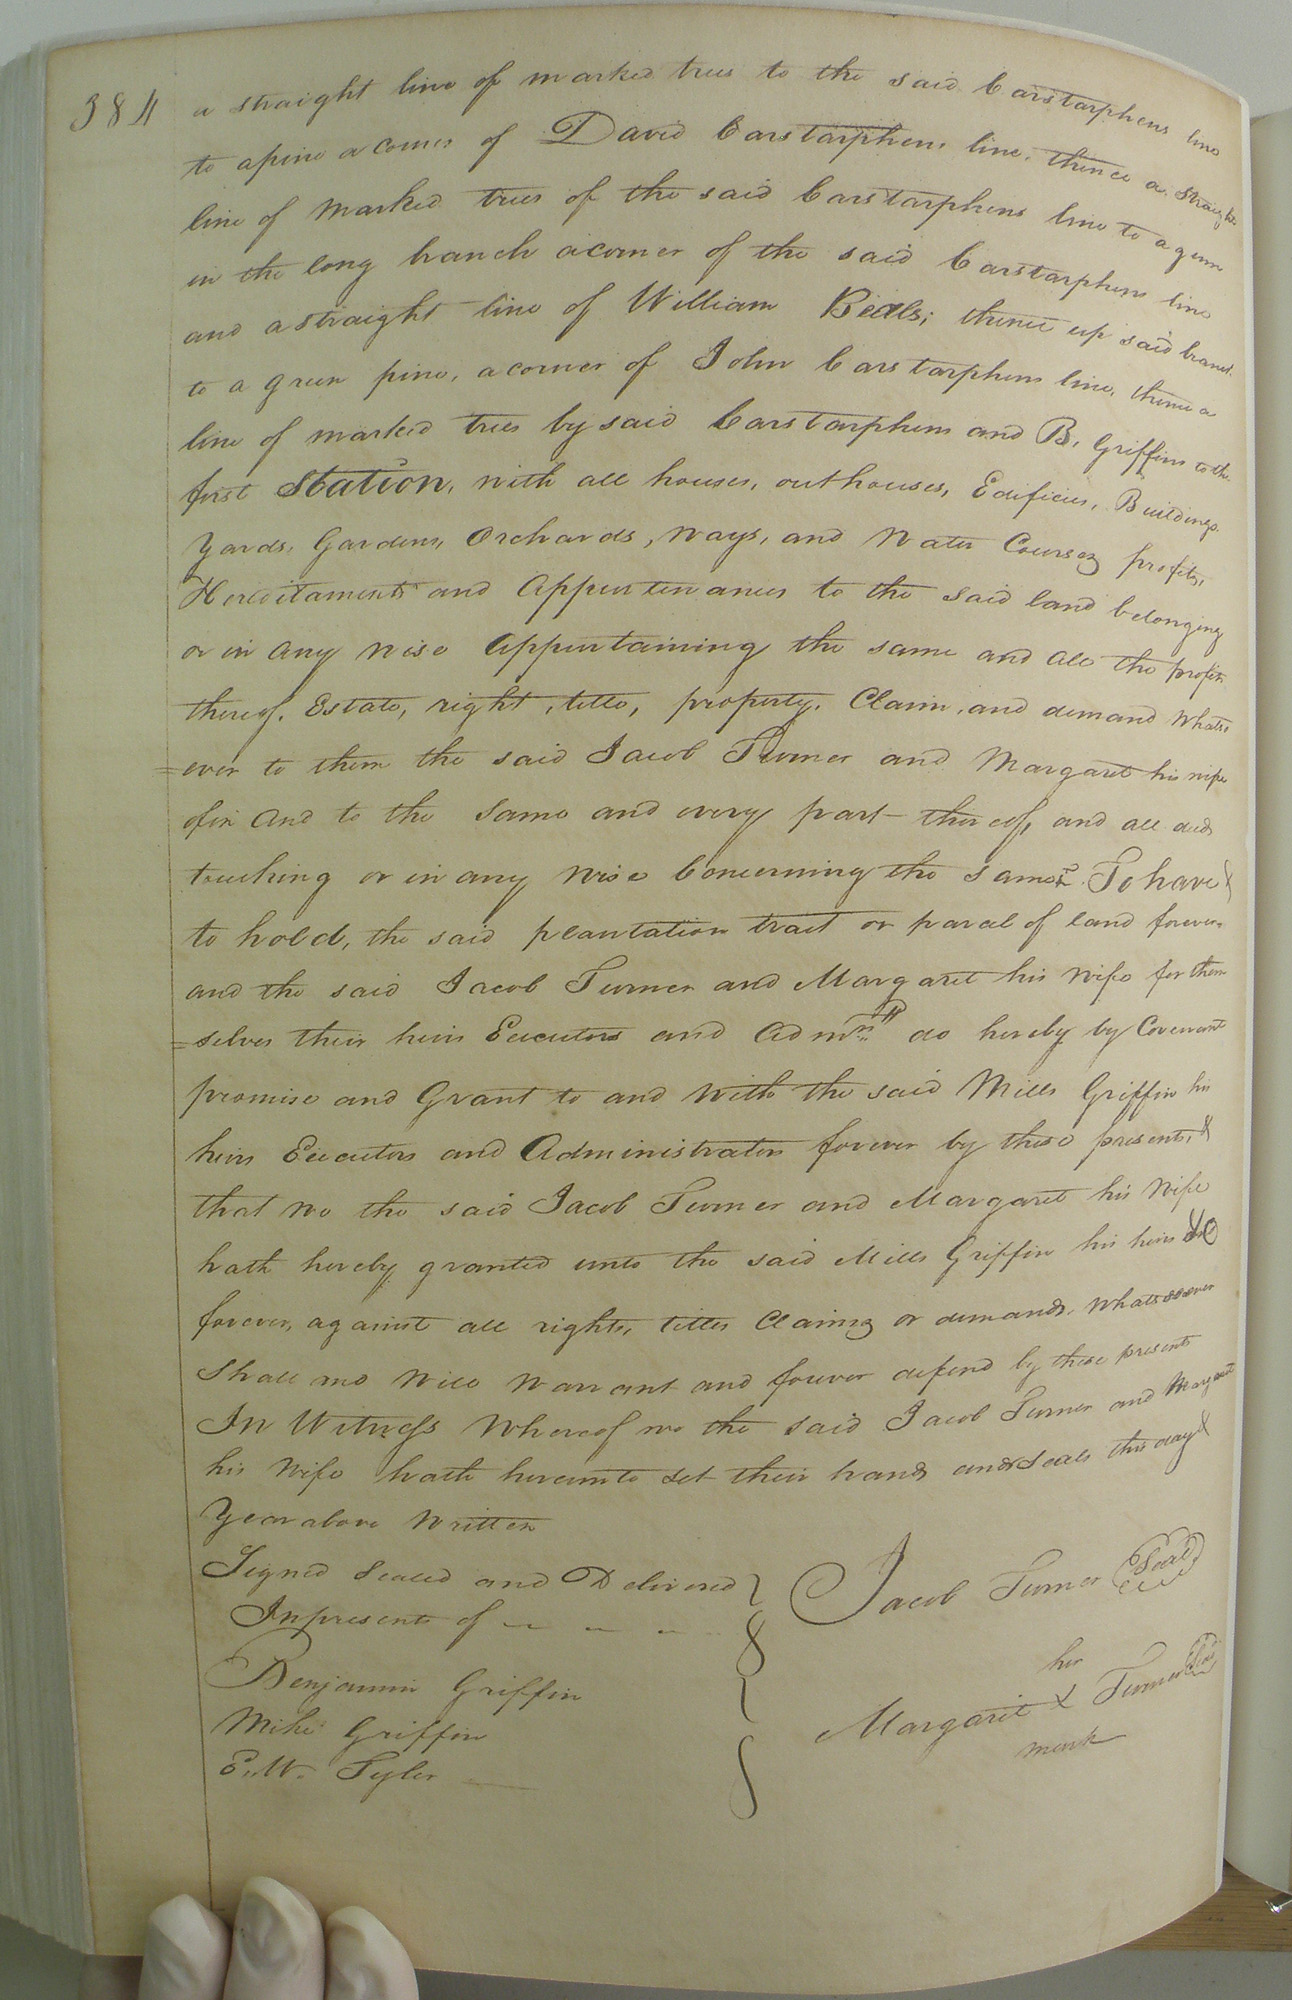 384
a straight line of marked trees to the said Carstarphens line
to a pine a corner of David Carstarphens line, thence a straight
line of marked trees of the said Carstarphens line to a gum
in the long branch a corner of the said Carstarphens line
and a straight line of William Beals; thence up said branch
to a green pine, a corner of John Carstarphens line, thence a
line of marked trees by said Carstarphens and B. Griffins to the
first Station, with all houses, outhouses, Edificies, Buildings
Yards, Gardens, Orchards, Ways, and Water Courses profits,
Hereditaments and Appurtenances to the said land belonging
or in any wise Appurtaining the same and all the profits
thereof, Estate, right, title, property, Claim, and demand whatso
=ever to them the said Jacob Turner and Margaret his wife
of in and to the same and every part thereof, and all deeds
touching or in any wise Concerning the same. To have &
to hold, the said plantation tract or parcel of land forever
and the said Jacob Turner and Margaret his wife for them
=selves their heirs Executors and Admrs do hereby by Covenant
promise and Grant to and with the said Mills Griffin his
heirs Executors and Administrators forever by these presents, &
that we the said Jacob Turner and Margaret his wife
hath hereby granted unto the said Mills Griffin his heirs &c
forever, against all rights, titles Claims or demands whatsoever
Shall and will warrant and forever defend by these presents
In Witness Whereof we the said Jacob Turner and Margaret
his wife hath hereunto set their hands and Seals this day &
Year above written
Signed Sealed and Delivered
In presents of
Jacob Turner Seal
Benjamin Griffin
her
Mike Griffin
Margaret X Turner Seal
mark
E. W. Tyler